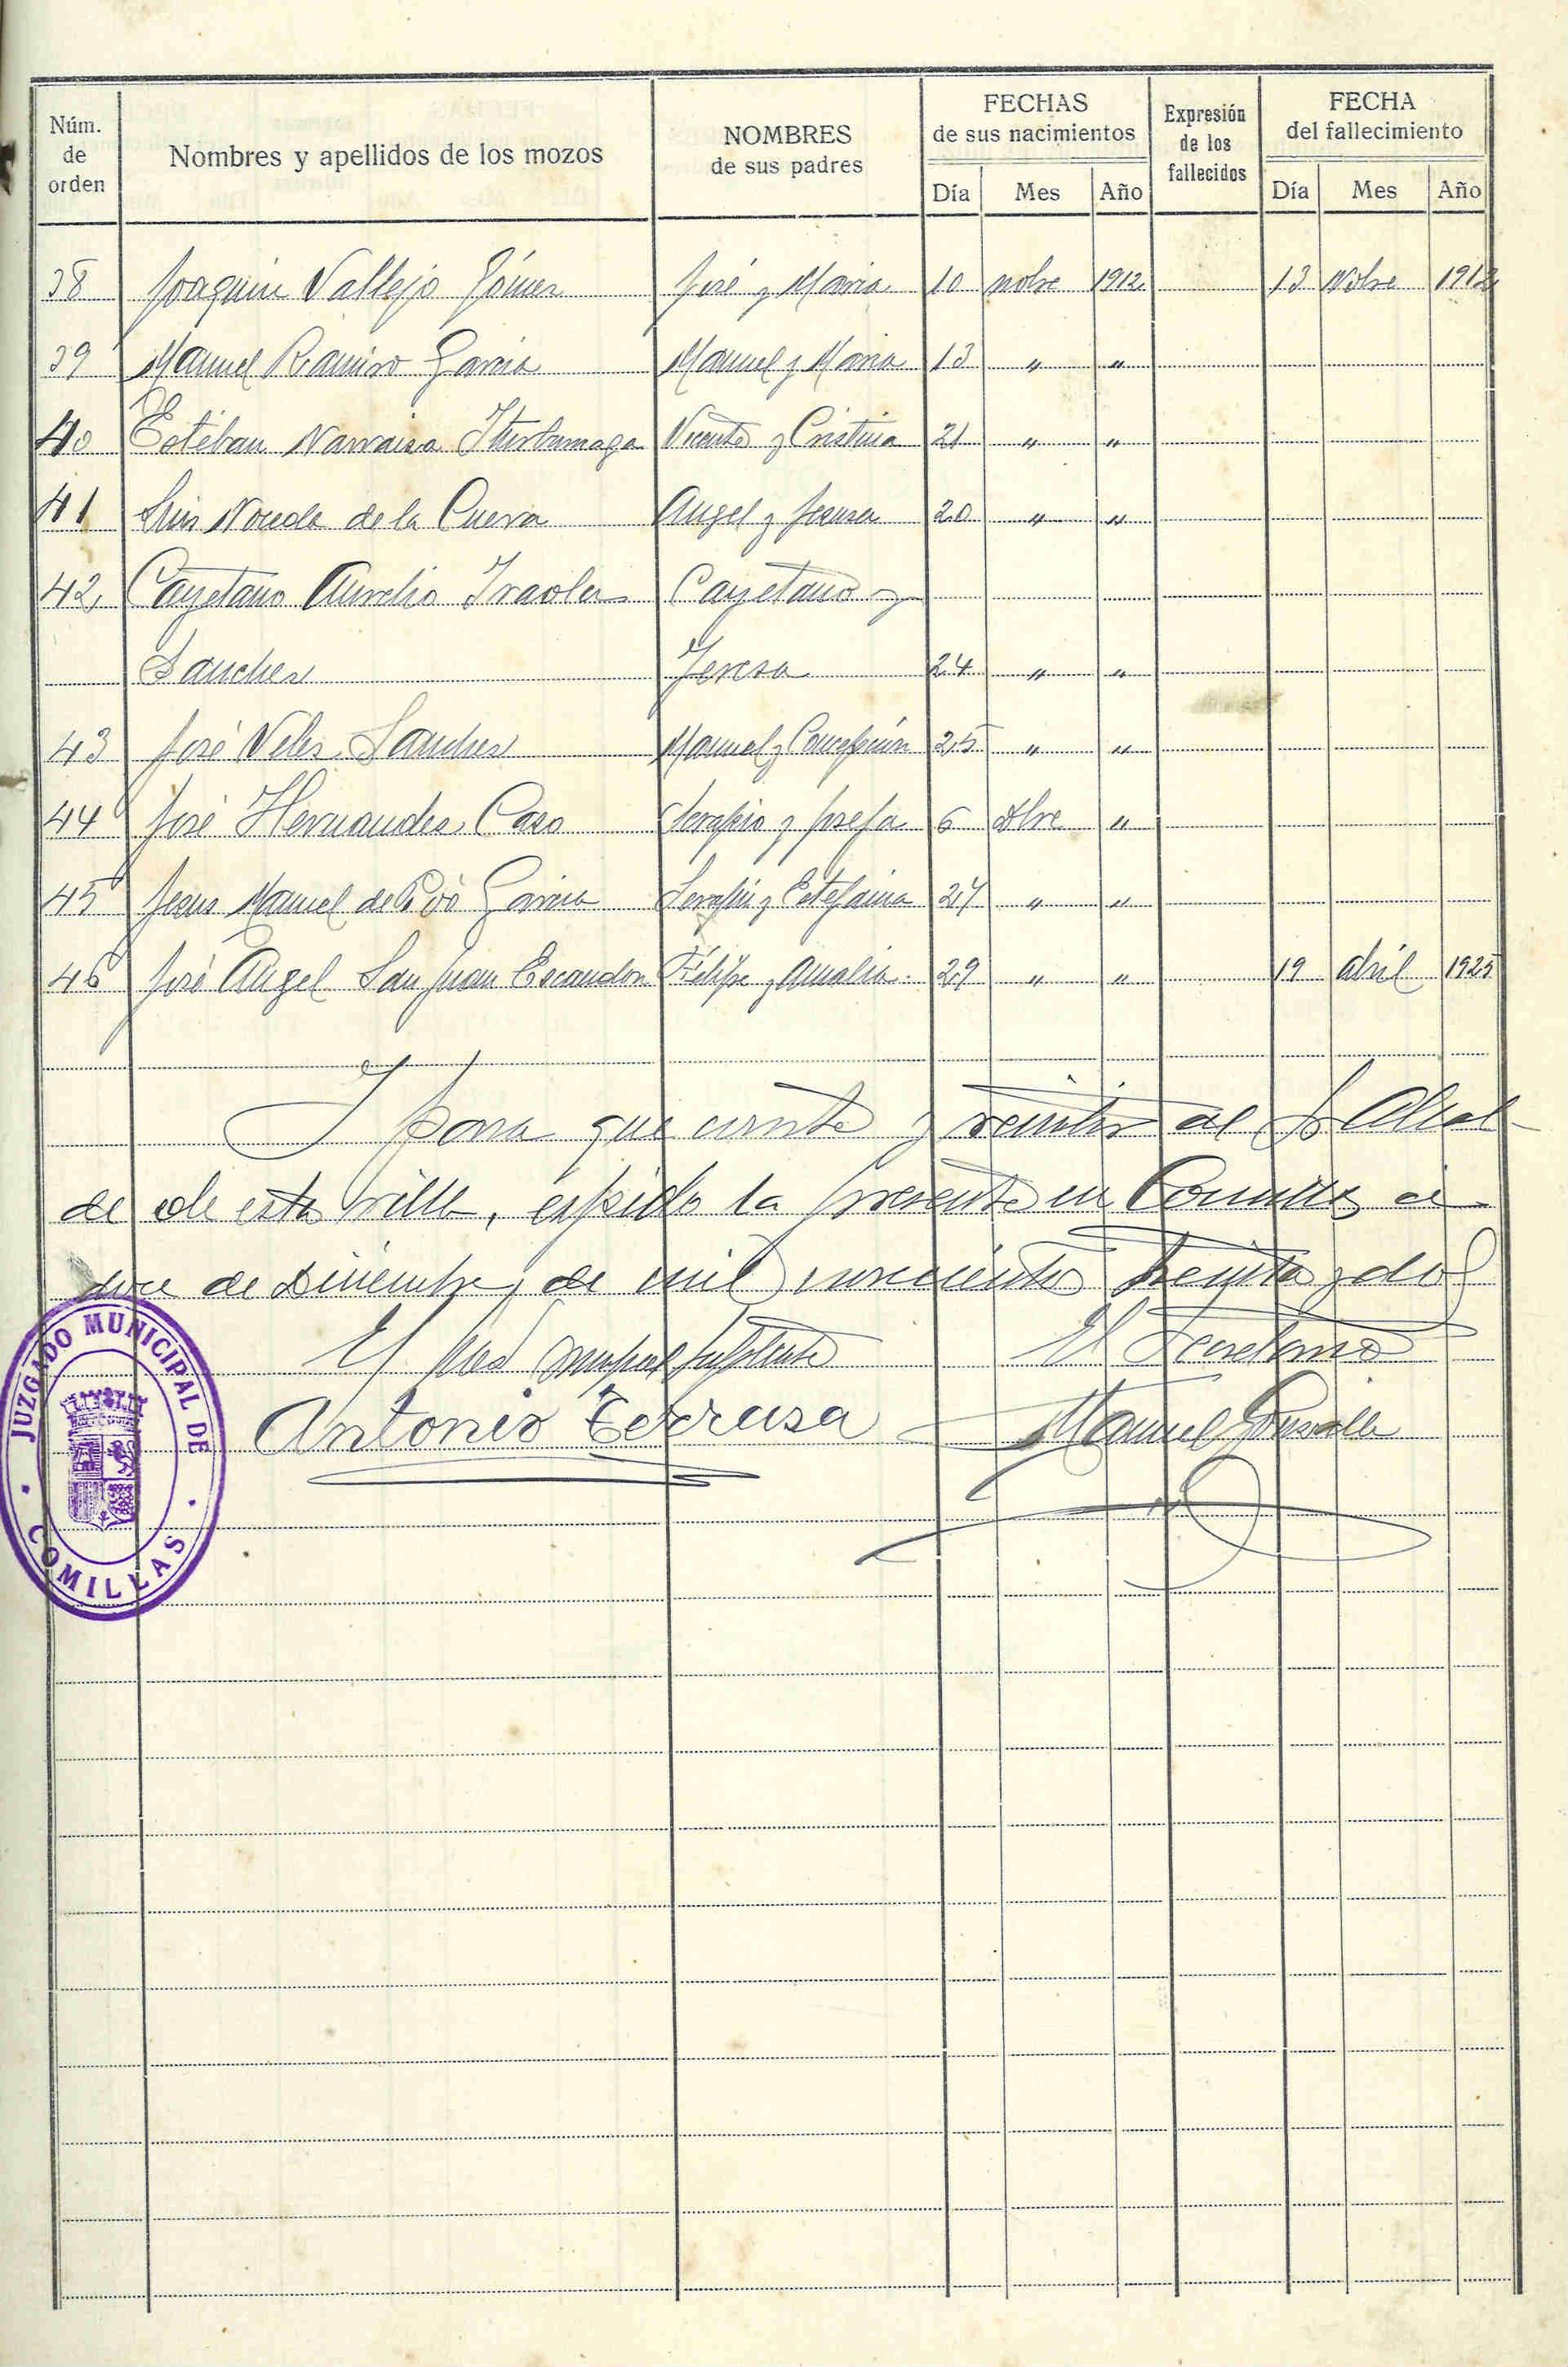 Núm. de orden Nombres y apellidos de los mozos NOMBRES de sus padres FECHAS de sus nacimientos Expresión de los fallecidos FECHA del fallecimiento
Día Mes Año Día Mes Año
38 Joaquin Vallejo Gómez José y Maria 10 nobre 1912 13 Nobre 1912
39 Manuel Ramiro Garcia Manuel y Maria 13 " "
40 Estéban Narraiza Vicente y Cristina 21 " "
41 Luis Noceda de la Cueva Angel y Jesusa 20 " "
42 Cayetano Aurelio Iraola Cayetano y
Sanchez Teresa 24 " "
43 José Velez Sanchez Manuel y Concepción 25 " "
44 José Hernandez Caso Serapio y Josefa 6 Dbre "
45 Jesus Manuel de Poó Garcia Serafin y Estefania 27 " "
46 José Angel San Juan Escandon Felipe y Amalia 29 " " 19 abril 1925
Y para que conste y remitir al Sr Alcal-
de de esta villa, espido la presente en Comillas a
doce de Diciembre, de mil novecientos treinta y dos
El Juez municipal suplente El Secretario
Antonio Terrasa Manuel
JUZGADO MUNICIPAL DE
COMILLAS